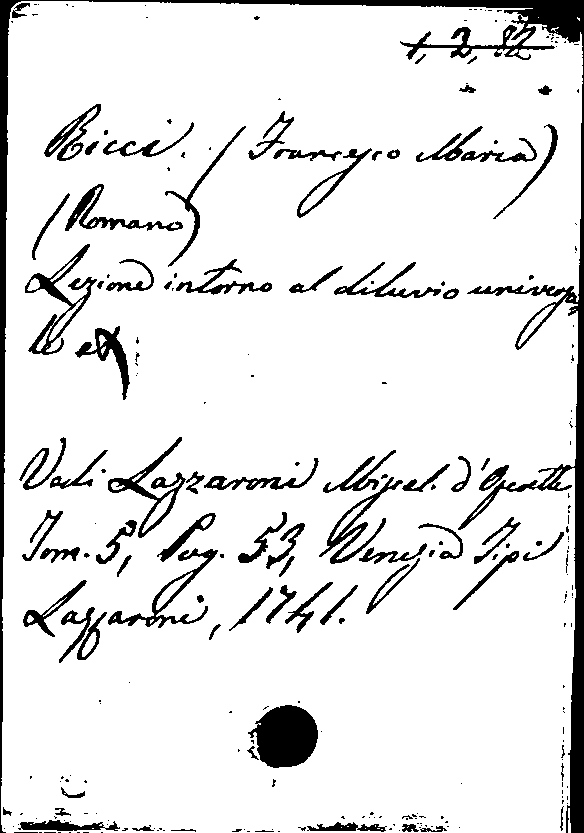 1, 2, 82
Ricci. (Francesco Maria)
(Romano)
Lezione intorno al diluvio universa=
le
Vedi Lazzaroni Miscel. d'Operette
Tom. 5, Pag. 53, Venezia Tipi
Lazzaroni, 1741.